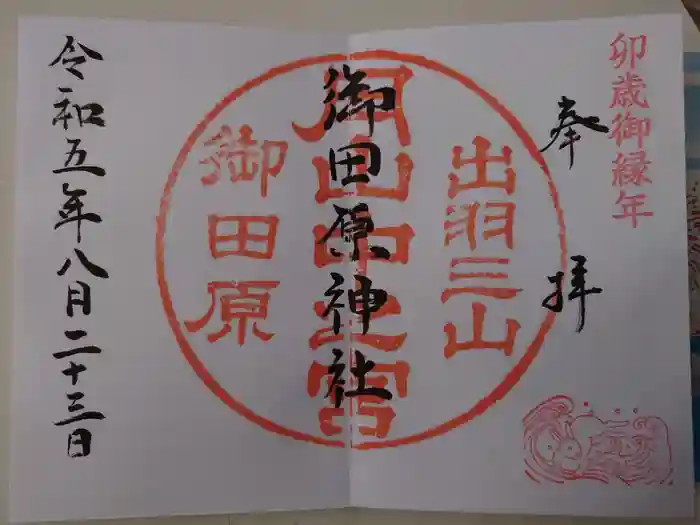 卯歳御縁年
奉拝
出羽三山
月山中之宮
御田原
御田原神社
令和五年八月二十三日